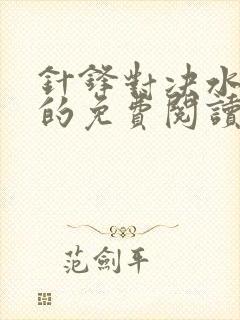 針鋒對決水
的免費閱讀
范劍平